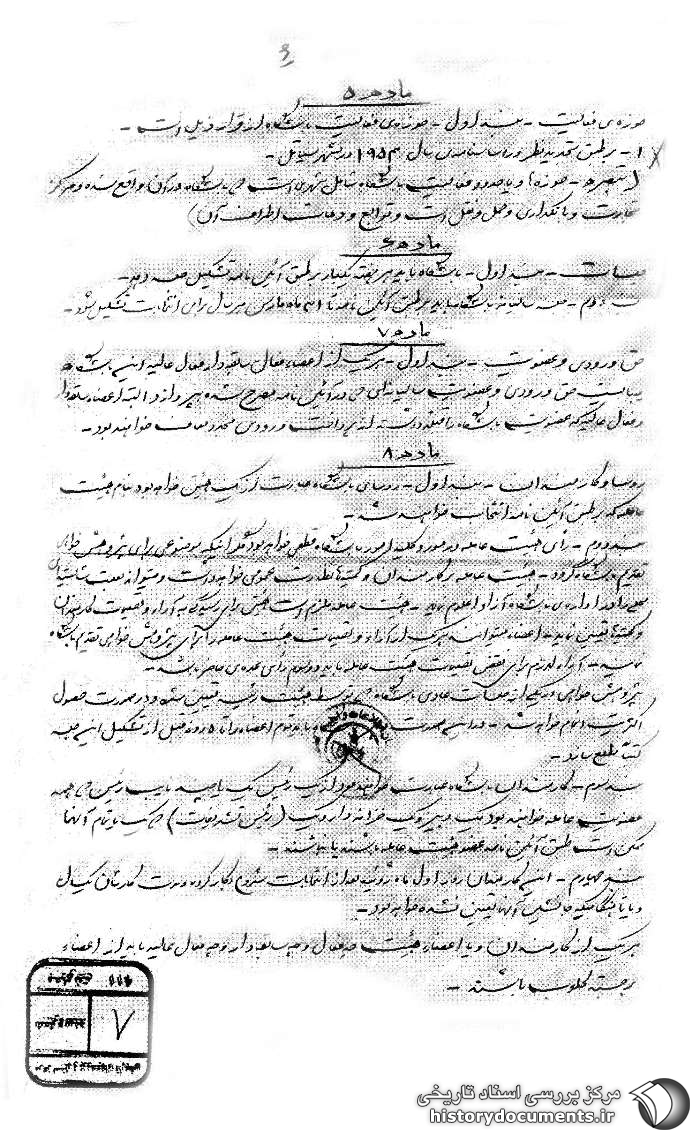 ۶
ماده ۵
حوزه‌ی فعالیت - بند اول - حوزه‌ی فعالیت باشگاه از قرار ذیل است -
۱- بر طبق تجدید نظر در اساسنامه‌ی سال ۱۹۵۴ در شهر
(تبصره - حوزه و یا حدود فعالیت باشگاه شامل شهری است که باشگاه در آن واقع شده و مرکز
تجارت و بانکداری و حمل و نقل است و توابع و دهات اطراف آن)
ماده ۶
جلسات - بند اول - باشگاه باید هر هفته یکبار بر طبق آئین نامه تشکیل جلسه دهد -
بند دوم - جلسه سالیانه باشگاه باید بر طبق آئین نامه تا ۳۱ ماه مارس هر سال برای انتخابات تشکیل شود -
ماده ۷
حق ورودی و عضویت - بند اول - هر یک از اعضاء فعال سابقه دار فعال عالیه این باشگاه
بابت حق ورودی و عضویت سالیانه‌ای که در آئین نامه مصرح شده بپردازد البته اعضاء سابقه دار
و فعال عالیه که عضویت باشگاه را قبلا داشته از پرداخت ورودی مجدد معاف خواهند بود -
ماده ۸
روسا و کارمندان - بند اول - روسای باشگاه عبارت از یک هیئتی خواهد بود بنام هیئت
عامله که بر طبق آئین نامه انتخاب خواهند شد -
بند دوم - رأی هیئت عامله در مورد کلیه امور باشگاه قطعی خواهد بود مگر اینکه موضوعی برای پژوهش خواهی
تقدیم باشگاه گردد - هیئت عامله بر کارمندان و کمیته‌ها نظارت عمومی خواهد داشت و میتواند
محلی را در اداره‌ی باشگاه آزاد اعلام نماید - هیئت عامله ملزم است هیئتی برای رسیدگی به آراء و تصمیمات کارمندان
و کمیته‌ها تعیین نماید - اعضاء میتوانند هر یک از آراء و تصمیمات هیئت عامله را برای پژوهش خواهی تقدیم باشگاه
نمایند - آراء لازم برای نقض تصمیمات هیئت عامله باید دو سوم رأی عده‌ی حاضر باشد -
پژوهش خواهی در یکی از جلسات عادی باشگاه که توسط هیئت رئیسه تعیین شده و در صورت حصول
اکثریت انجام خواهد شد - در این صورت باید تمام اعضاء را تا ۵ روز قبل از تشکیل این جلسه
کتباً مطلع سازد -
بند سوم - کارمندان باشگاه عبارت خواهند بود از یک رئیس یک یا چند نایب رئیس که همه
عضویت عامله خواهند بود یک دبیر و یک خزانه دار و یک (رئیس تشریفات) که یک یا تمام آنها
ممکن است طبق آئین نامه عضو هیئت عامله باشند یا نباشند -
بند چهارم - این کارمندان روز اول ماه ژوئیه بعد از انتخابات شروع بکار کرده و مدت کارشان یکسال
و یا تا هنگامیکه جانشین آنان تعیین نشده خواهد بود -
هر یک از کارمندان و یا اعضاء هیئت چه فعال و چه سابقه دار و چه فعال عالیه باید از اعضاء
برجسته کلوب باشند -
۷
مرکز بررسی اسناد تاریخی
historydocuments.ir